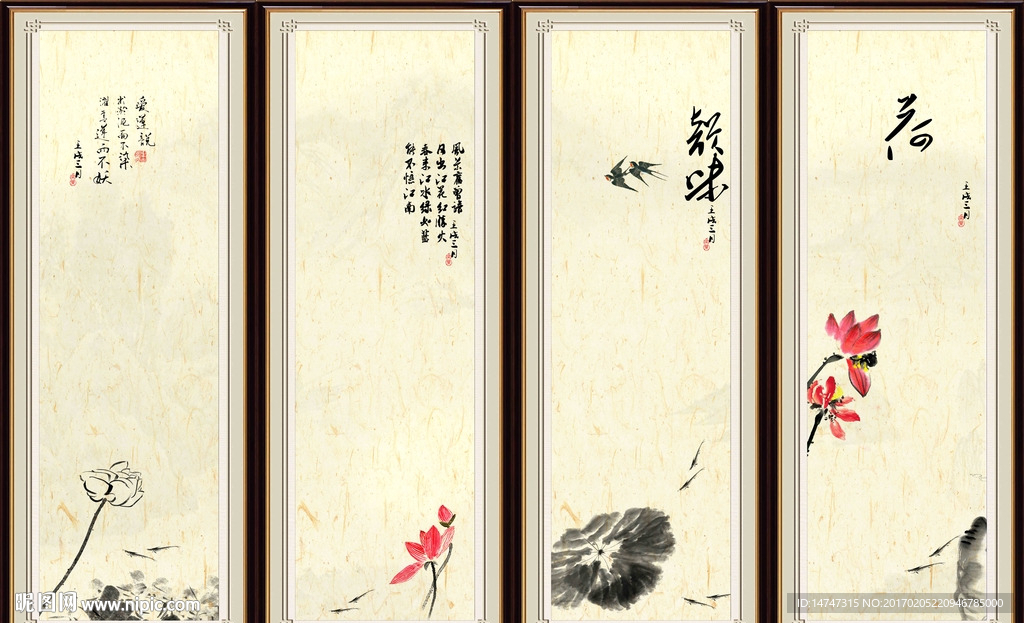 愛蓮說
出淤泥而不染
而不妖
壬戌三月
風景舊曾諳
日出江花紅勝火
春來江水綠如藍
能不憶江南
壬戌三月
韻味
壬戌三月
荷
壬戌三月
昵图网 www.nipic.com
ID:14747315 NO:20170205220946785000